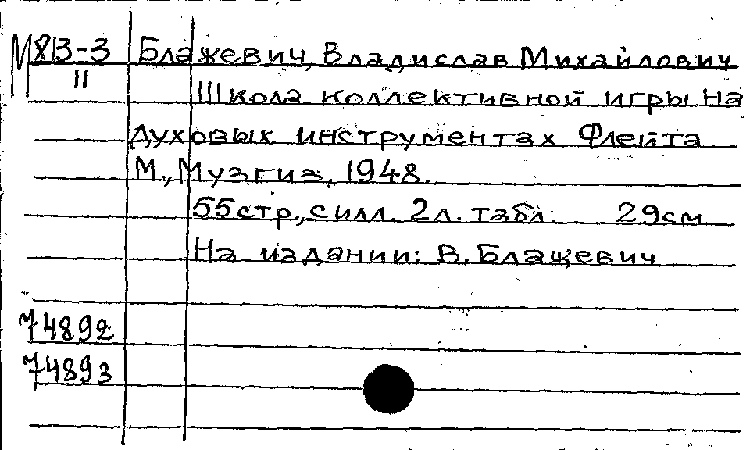 М813-3 Блажевич, Владислав Михайлович
II Школа коллективной игры на
духовых инструментах Флейта
М., Музгиз, 1948.
55стр., с илл. 2л. табл. 29см
На издании: В. Блажевич
74892
74893